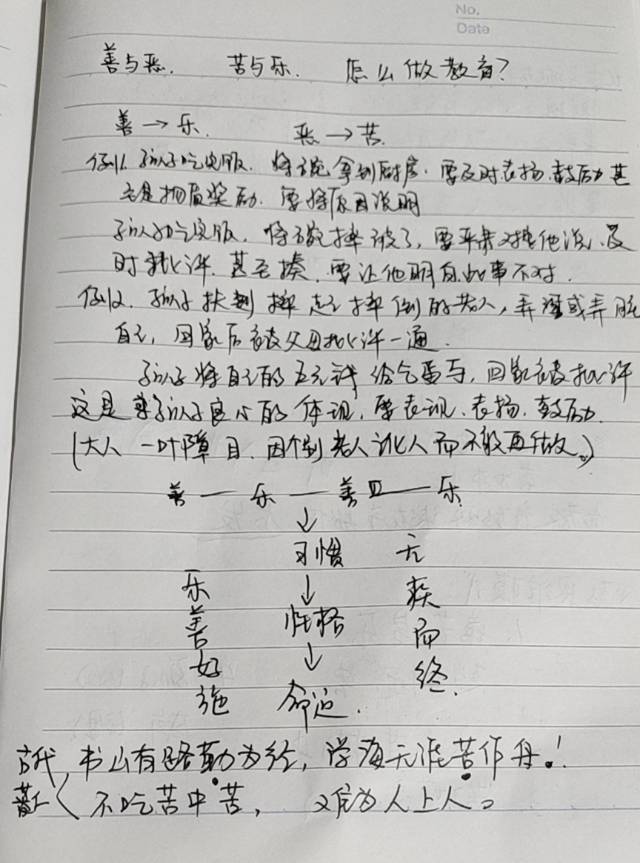 No.
Date
善与恶. 苦与乐. 怎么做教育?
善→乐. 恶→苦.
例1. 孩子吃完饭. 将碗拿到厨房. 要及时表扬.鼓励甚
至是物质奖励. 要将原因说明
孩子吃完饭. 将碗摔破了, 要严肃对待他说.及
时批评. 甚至揍. 要让他明白此事不对.
例2. 孩子扶起摔倒的老人, 弄湿或弄脏
自己, 回家后被父母批评一通.
孩子将自己的五元钱给乞丐与, 回家被批评
这是孩子良心的体现, 要表现.表扬.鼓励.
(大人一叶障目. 因个别老人讹人而不敢再做。)
善 — 乐 — 善 — 乐.
↓
习惯 无
乐 ↓ 疾
善 性格 而
好 ↓ 终.
施 命运.
古代, 书山有路勤为径, 学海无涯苦作舟.!
不吃苦中苦, 难为人上人。